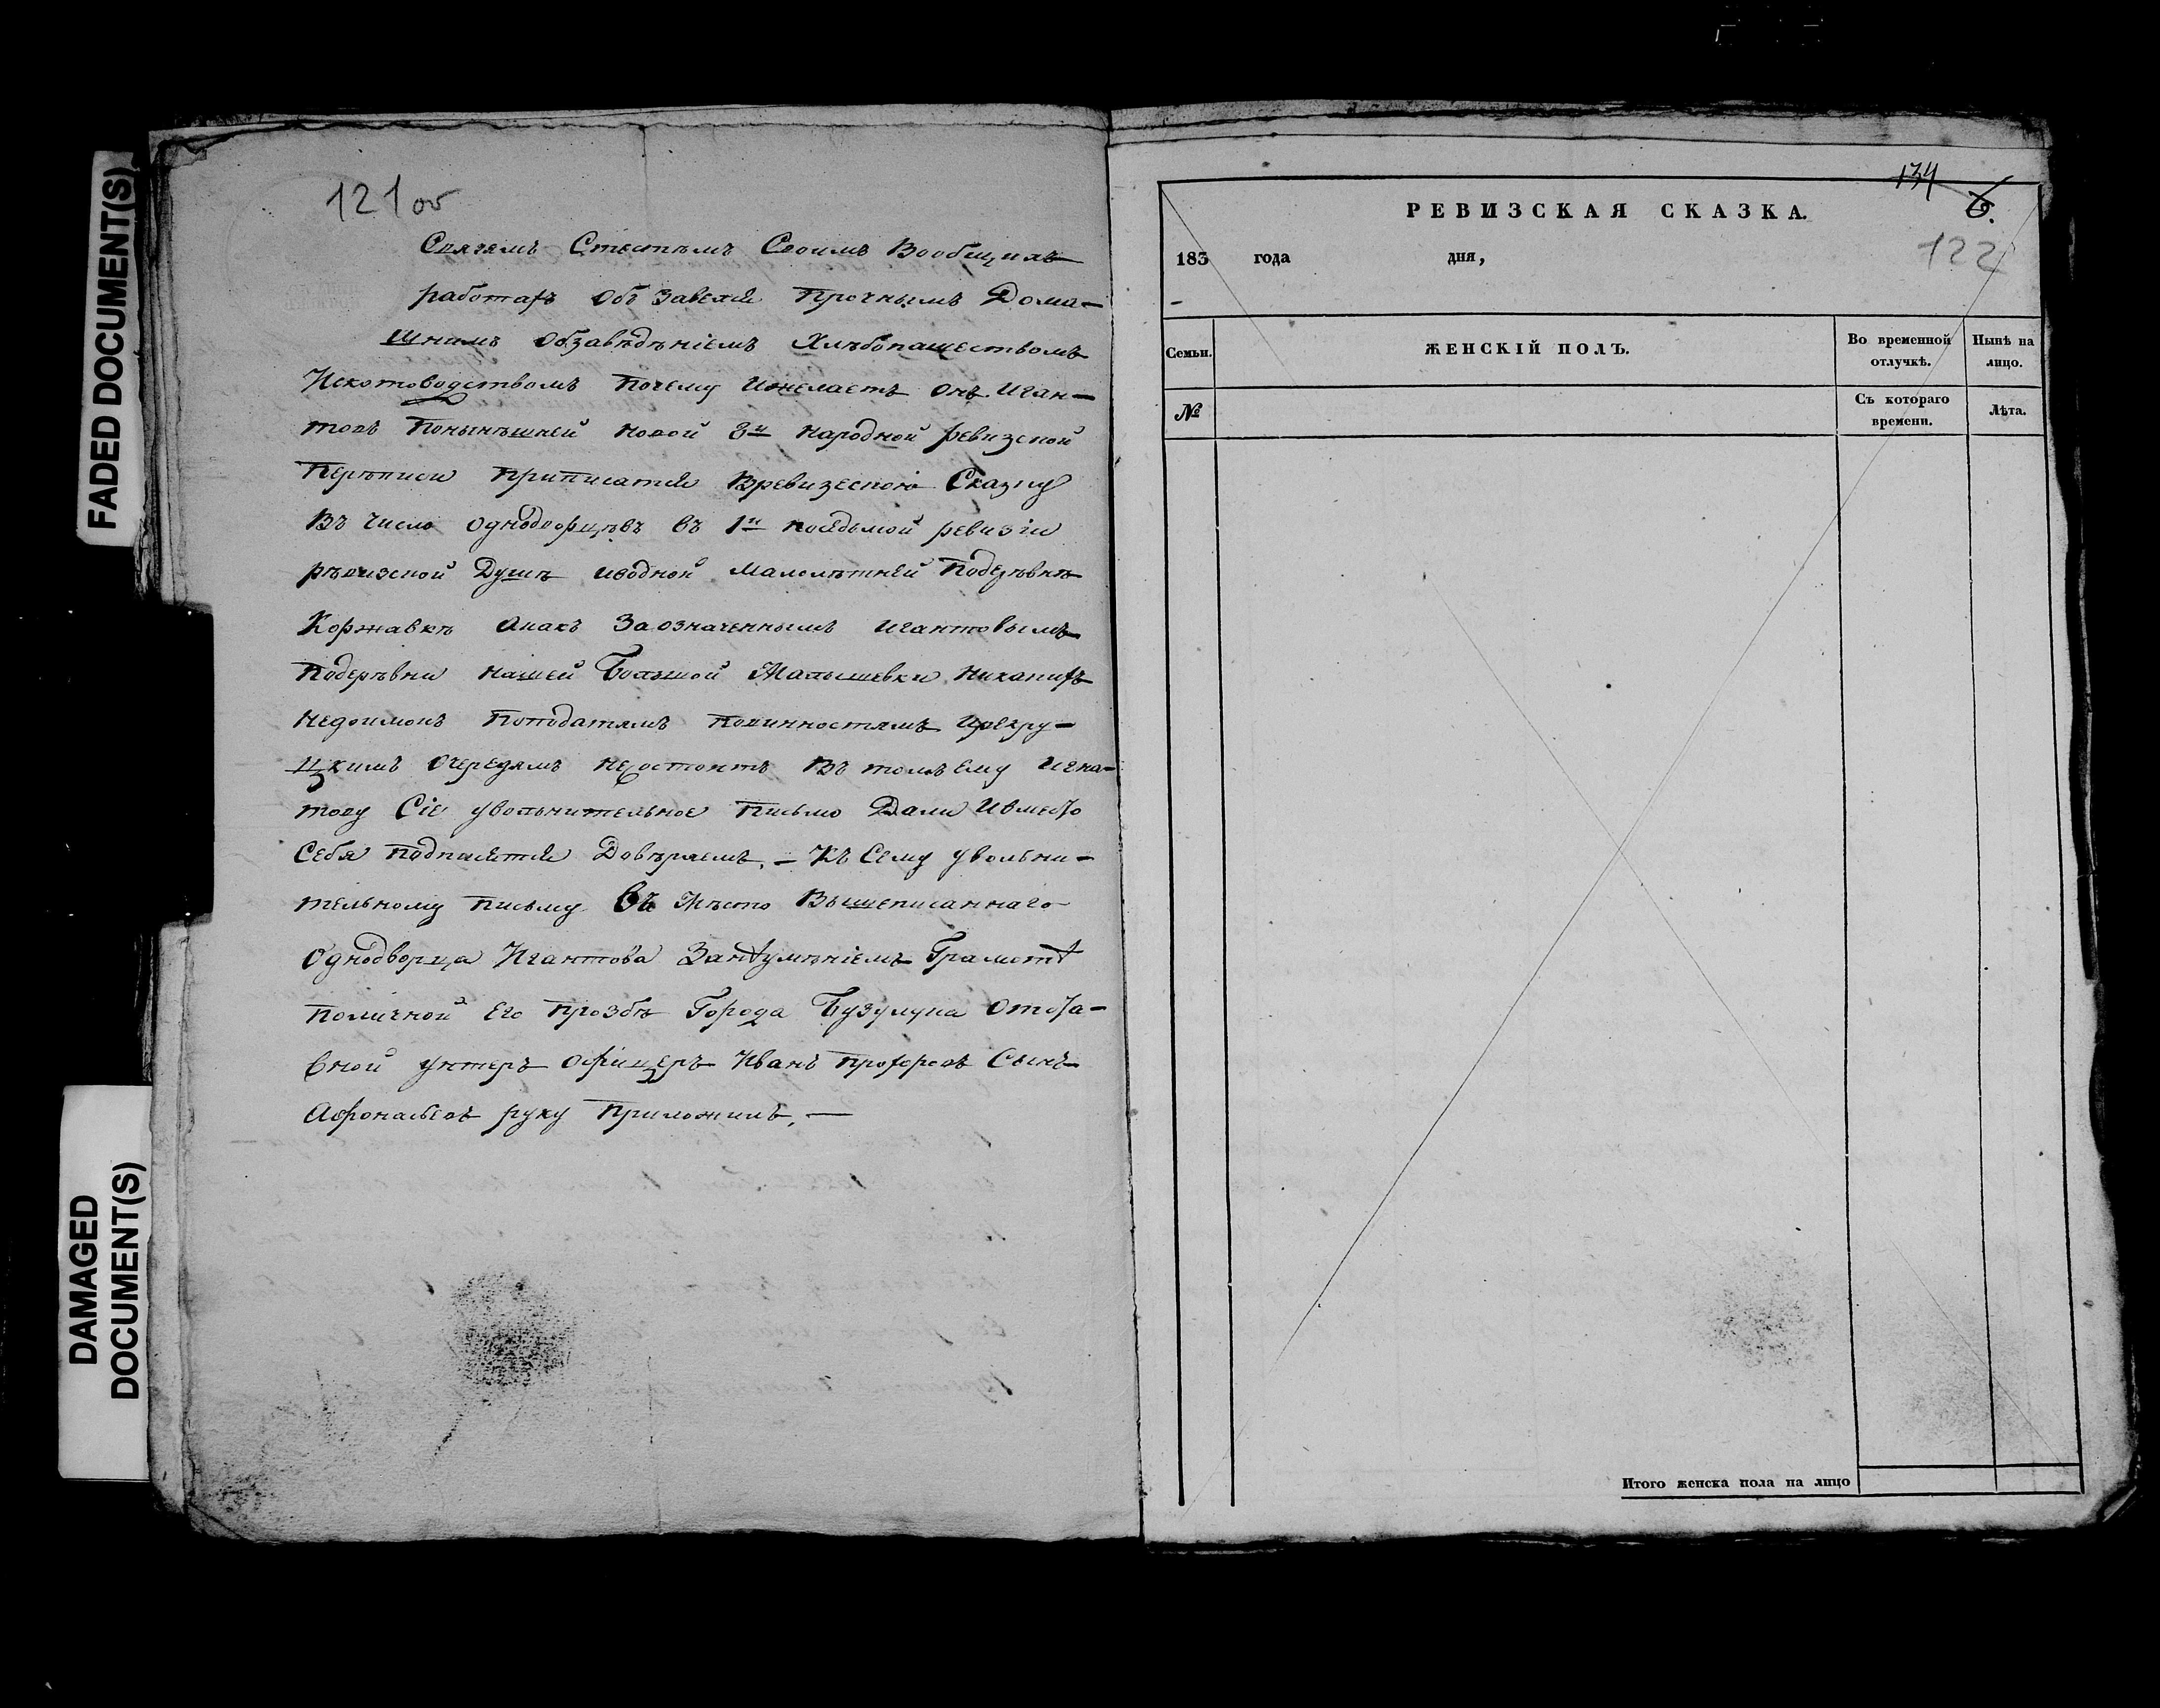 FADED DOCUMENT(S)
DAMAGED DOCUMENT(S)
121 об
Стестемъ Своимъ Вообщихъ
работахъ Обзавелся Прочнымъ Дома-
шнимъ Обзавѣдѣніемъ Хлѣбопашествомъ
Искотоводствомъ Почему Ижелаетъ Онъ Иган-
товъ Понынѣшней новой 8й народной ревизской
Перѣписи Приписатся Времизскою Сказку
Въ Число Однодворцѣвъ въ 1й поседьмой ревизіи
рѣвизской Душѣ иводной Малолѣтней Подерѣвнѣ
Коржавкѣ Акакъ Заозначеннымъ игантовымъ
Подерѣвни нашей Большой Малышевки Никакихъ
Недоимокъ Поподатямъ Повинностямъ Ирекру-
цкимъ Очередямъ Несостоитъ Въ томъ Ему Игна-
тову Сіе увольнительное Письмо Дали Ивместо
Себя подписатся Довѣряемъ. - Къ Сему увольни-
тельному Письму Въ Мѣсто Вышеписаннаго
Однодворца Игантова Занеумѣніемъ Грамоте
Поличной Его Прозбѣ Города Бузулука Отста-
вной унтеръ Офицеръ Иванъ Сынъ
Афонасьевъ руку Приложилъ. —
134
6.
122
РЕВИЗСКАЯ СКАЗКА.
183 года дня,
Семьи. ЖЕНСКІЙ ПОЛЪ. Во временной отлучкѣ. Нынѣ на лицо.
№ Съ котораго времени. Лѣта.
Итого женска пола на лицо